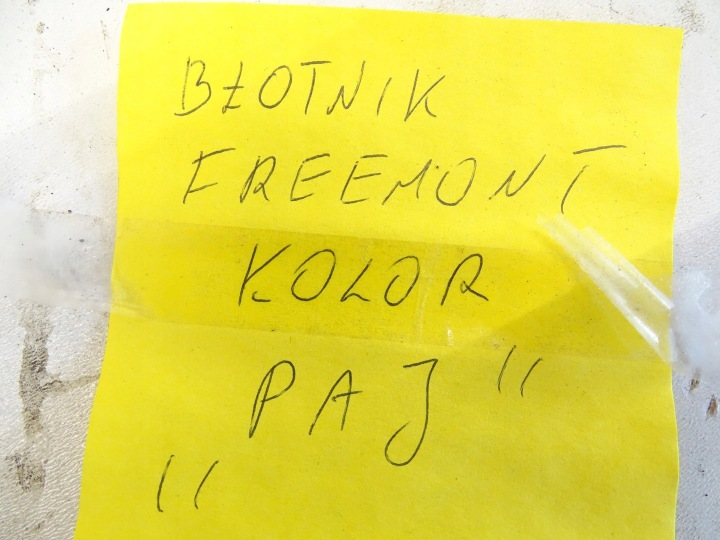 BŁOTNIK
FREEMONT
KOLOR
PAJ "
"